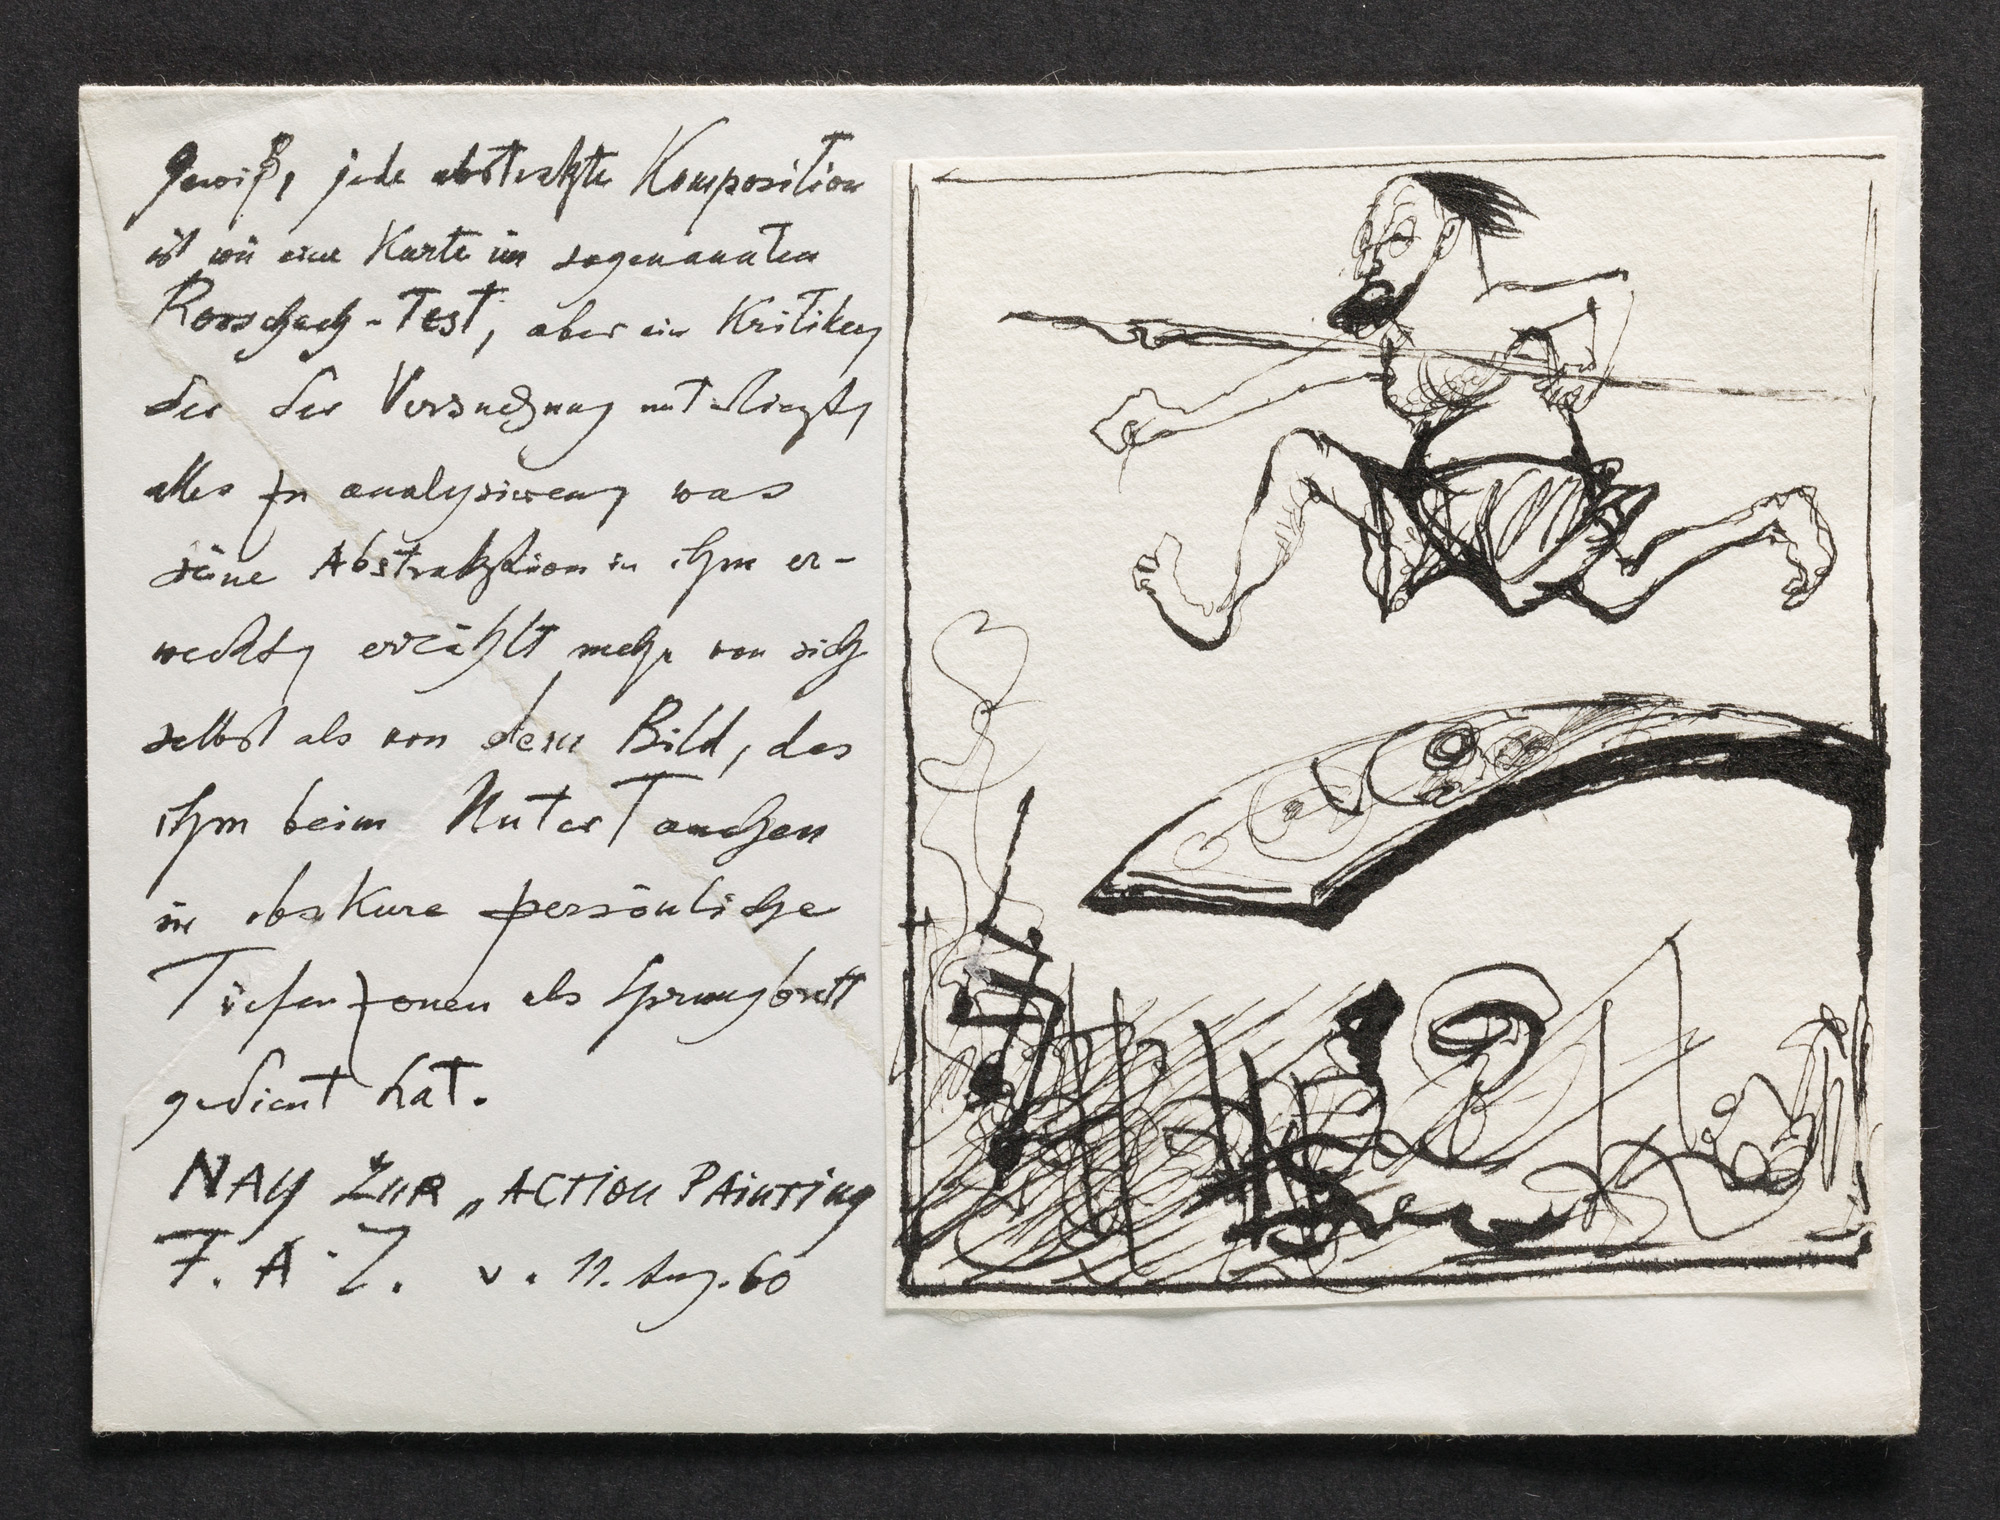 Gewiß, jede abstrakte Komposition
ist wie eine Karte im sogenannten
Rorschach-Test, aber ein Kritiker,
der der Versuchung unterliegt,
alles zu analysieren, was
seine Abstraktion in ihm er-
weckt, erzählt mehr von sich
selbst als von dem Bild, das
ihm beim Untertauchen
in obskure persönliche
Tiefenzonen als Sprungbrett
gedient hat.
NAY ZUR „ACTION PAinTing
F.A.Z. v. 11. Aug. 60